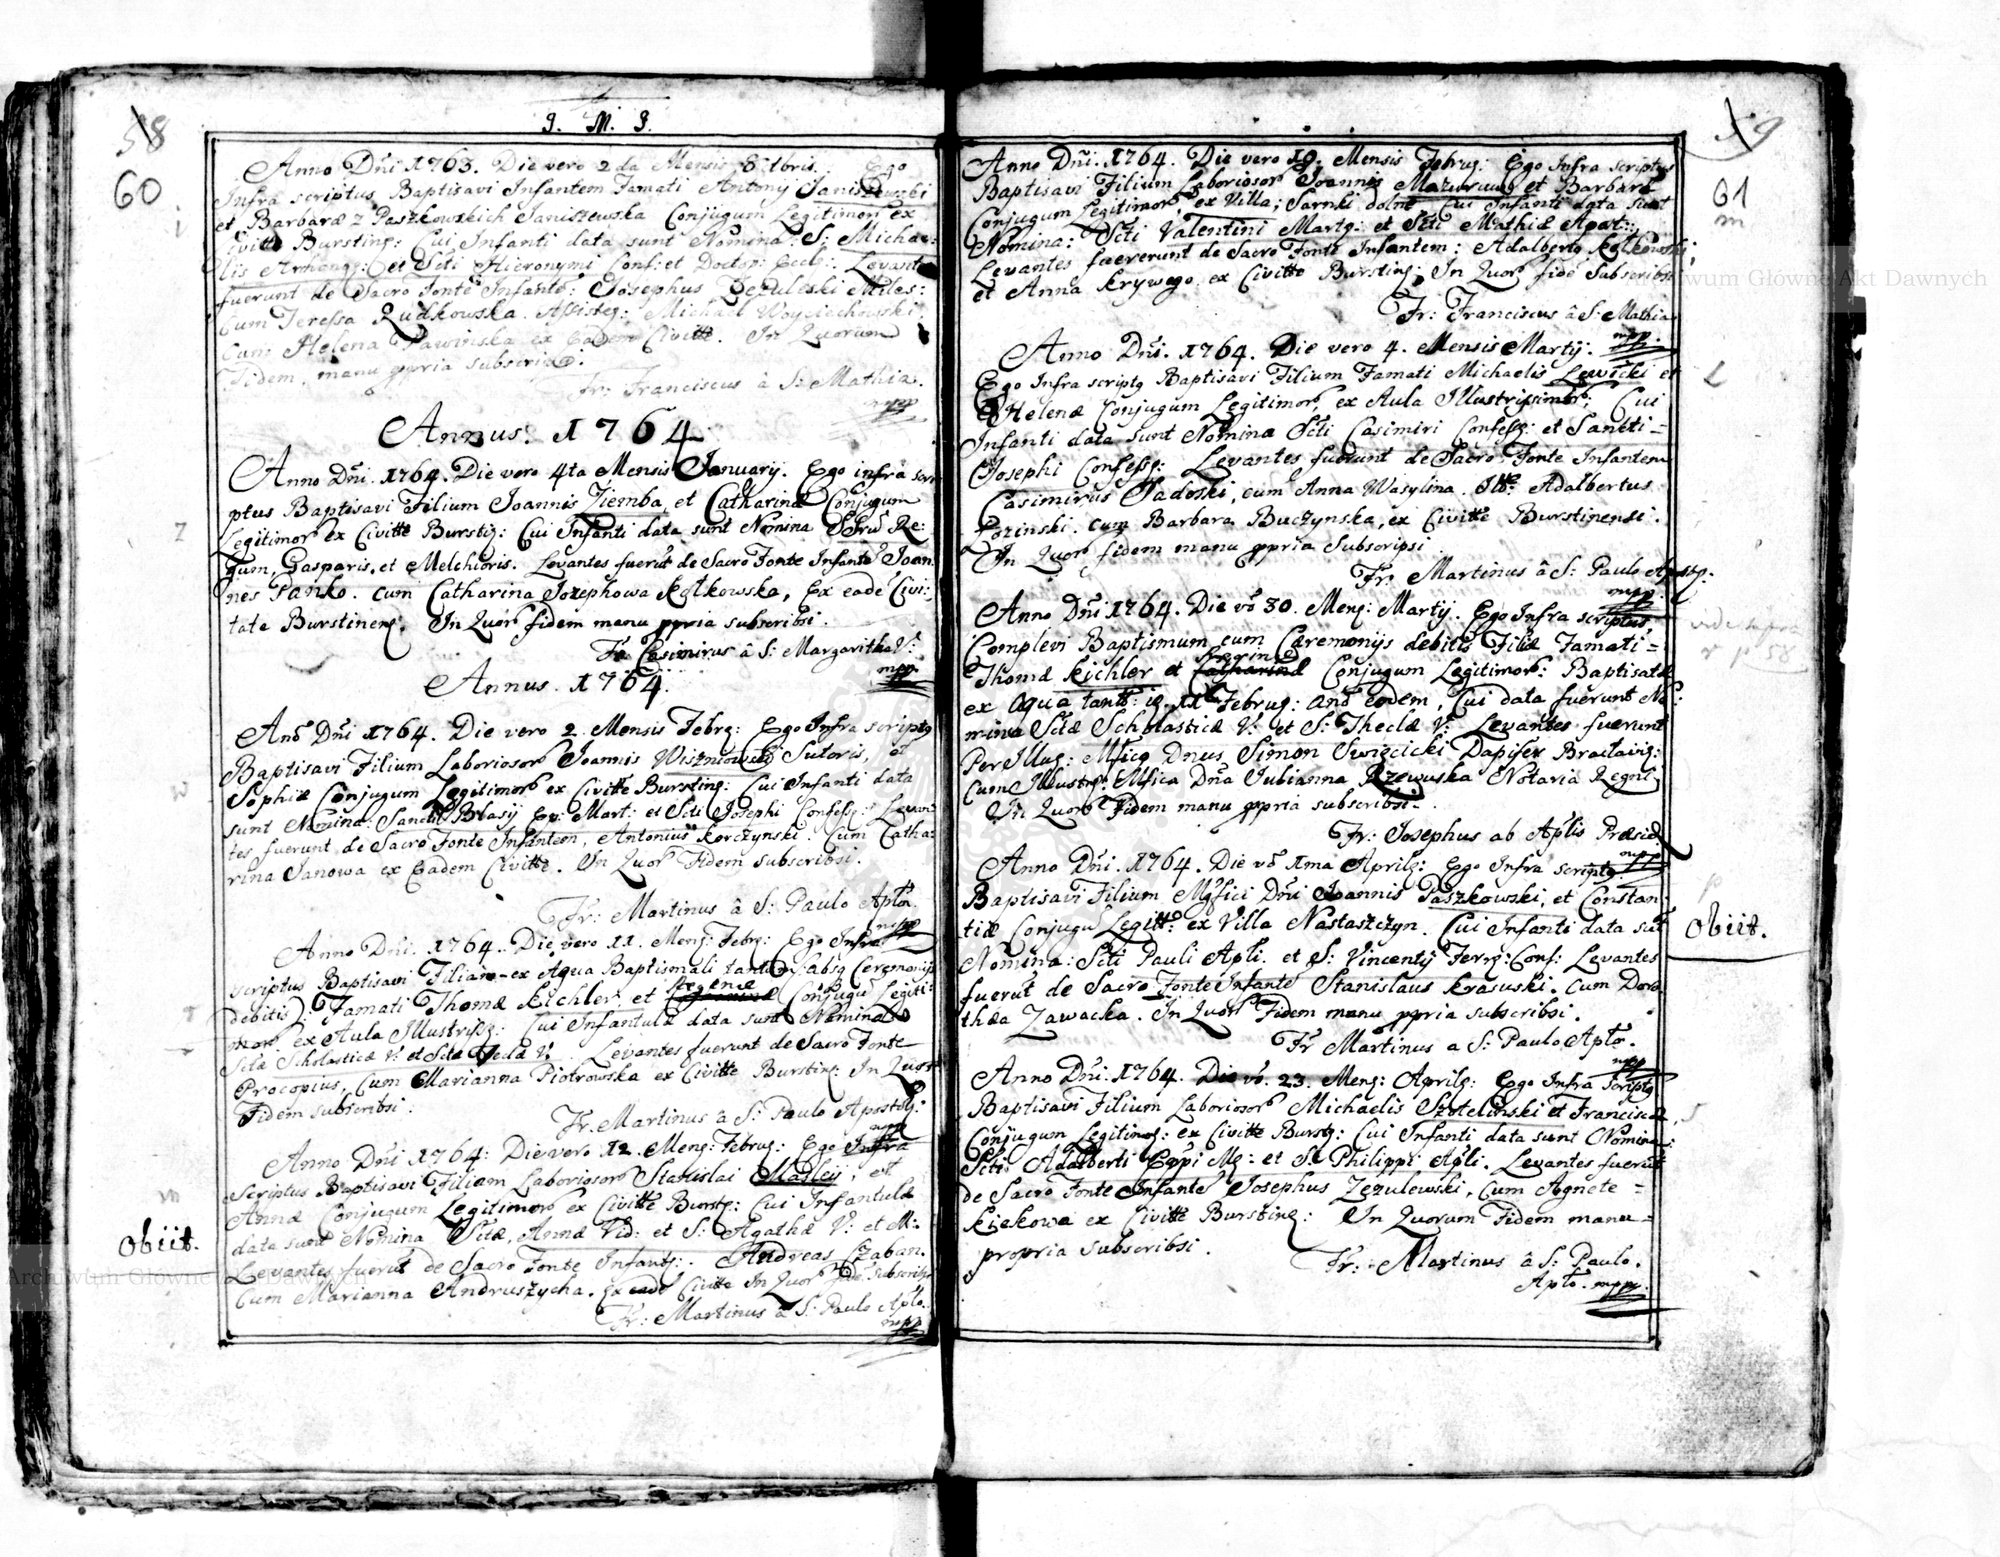 58
60
J. M. J.
Anno Dñi 1763. Die vero 2da Mensis 8bris. Ego
Infra scriptus Baptisavi Infantem Famati Antony Janiszewski
et Barbaræ z Paszkowskich Janiszewska Conjugum Legitimor ex
Civitte Bursting: Cui Infanti data sunt Nomina: S: Michae:
lis Archang: et Scti Hieronymi Conf: et Doctor: Eccle: Levante
fuerunt de Sacro Fonte Infante: Josephus Zezuleski Miles:
Cum Teressa Rudkowska. Assisteg: Michael Woyciechowski
Cum Helena Pawinska ex Eadem Civitte. In Quorum
Fidem, manu ppria subscripsi.
Fr: Franciscus à S: Mathia.
mpp
Annus. 1764
Anno Dñi. 1764. Die vero 4ta Mensis January. Ego infra scri
ptus Baptisavi Filium Joannis Ziemba et Catharinæ Conjugum
Legitimor ex Civitte Burstig: Cui Infanti data sunt Nomina SStrũ Re:
gum, Gasparis, et Melchioris. Levantes fuerut de Sacro Fonte Infante Joan
nes Panko. cum Catharina Jozephowa Kolkowska, Ex eade Civi:
tate Burstineng. In Quor fidem manu ppria subscribsi.
Fr Casimirus â S: Margaritha V:
mpp
Annus. 1764.
Anô Dñi 1764. Die vero 2. Mensis Febrg: Ego Infra scriptg
Baptisavi Filium Laboriosor Joannis Wiszniowski Sutoris, et
Sophiæ Conjugum Legitimor ex Civitte Bursting: Cui Infanti data
sunt Nomina: Sancti Blasij Ep: Mart: et Scti Josephi Confess: Levan
tes fuerunt de Sacro Fonte Infantem, Antonius Korczynski. Cum Catha:
rina Janowa ex Eadem Civitte. In Quor Fidem subscribsi.
Fr: Martinus â S: Paulo Aplo.
mpp
Anno Dñi. 1764. Die vero 11. Meng: Febrg: Ego Infra
scriptus Baptisavi Filiam ex Aqua Baptismali tantum: absq Ceremonijs
debitis) Famati Thomæ Kichler et Reginæ Conjugũ Legiti:
mor ex Aula Illustrissg: Cui Infantulæ data sunt Nomina
Sctæ Scholasticæ V: et Sctæ Teclæ V: Levantes fuerunt de Sacro Fonte
Procopius, Cum Marianna Piotrowska ex Civitte Bursting: In Quor
Fidem subscribsi.
Fr. Martinus â S: Paulo Apostol:
mpp
Anno Dñi 1764: Die vero 12. Meng: Februg: Ego Infra
scriptus Baptisavi Filiam Laboriosor Stanislai Madley, et
Annæ Conjugum Legitimor ex Civitte Burstg: Cui Infantulæ
data sunt Nomina Sctæ, Annæ Vid: et S: Agathæ V: et M:
Obiit.
Levantes fuerut de Sacro Fonte Infantg: Andreas Czaban.
Cum Marianna Andruszycha. Ex eade Civitte In Quor fide subscribsi
Fr: Martinus â S: Paulo Aplo.
mpp
59
61
m
Anno Dñi. 1764. Die vero 19. Mensis Februg: Ego Infra scriptus
Baptisavi Filium Laboriosor Joannis Mazurowy et Barbaræ
Conjugum Legitimor ex Villa; Sarnki dolne Cui Infanti data sunt
Nomina: Scti Valentini Martg: et Scti Mathiæ Apost:
Levantes fuererunt de Sacro Fonte Infantem: Adalbertg Kolkowski;
et Anna Krywego ex Civitte Bursting: In Quor fide Subscribsi
Fr: Franciscus â S: Mathia
mpp.
Anno Dñi. 1764. Die vero 4. Mensis Martij.
L
Ego Infra scriptg Baptisavi Filium Famati Michaelis Lewicki et
Helenæ Conjugum Legitimor, ex Aula Illustrissimor; Cui
Infanti data sunt Nomina Scti Casimiri Confessg: et Sancti=
Josephi Confessg: Levantes fuerunt de Sacro Fonte Infantem
Casimirus Sadoski, cum Anna Wasylina. Itte Adalbertus
Lozinski. cum Barbara Buczynska, ex Civitte Burstinensi.
In Quor fidem manu ppria Subscripsi
Fr: Martinus â S: Paulo Apostg.
mpp.
Anno Dñi 1764. Die vô 30. Meng: Martij. Ego Infra scriptus
Complevi Baptismum cum Cæremonijs debitis Filiæ Famati=
Thomæ Kichler et Reginæ Conjugum Legitimor: Baptisatæ
ex aqua tantt: ig. 11 Februg: anô eodem, Cui data fuerunt No:
mina Sctæ Scholasticæ V: et S: Theclæ V: Levantes fuerunt
Per Illug: Mficg Dnus Simon Swięcicki Dapifer Braclavig:
Cum Illustrg: Mfica Dña Iulianna Rzewuska Notaria Regni
In Quor Fidem manu ppria subscribsi.
Fr: Josephus ab Aplis Præsid.
mpp
Anno Dñi. 1764. Die vô 1ma Aprilg: Ego Infra scriptg
Baptisavi Filium Mgfici Dñi Joannis Paszkowski, et Constan
p
tiæ Conjugũ Legitt: ex Villa Nastaszczyn. Cui Infanti data sũt
Obiit.
Nomina: Scti Pauli Apli. et S: Vincentij Ferrg: Conf: Levantes
fuerut de Sacro Fonte Infante Stanislaus Krasuski. Cum Doro
thæa Zawacka. In Quor Fidem manu ppria subscribsi.
Fr Martinus a S: Paulo Aplo.
mpp
Anno Dñi. 1764. Die vô. 23. Meng: Aprilg: Ego Infra scriptg
Baptisavi Filium Laboriosor Michaelis Szotelinski et Franciscæ
Conjugum Legitimog: ex Civitte Burstg: Cui Infanti data sunt Nomina:
Scti: Adalberti Eppi Mg: et S: Philippi Apli. Levantes fuerut
de Sacro Fonte Infante Josephus Zezulewski, Cum Agnete=
Kiekowa ex Civitte Bursting: In Quorum Fidem manu=
propria subscribsi.
Fr: Martinus â S: Paulo.
Aplo. mpp.
Archiwum Główne Akt Dawnych